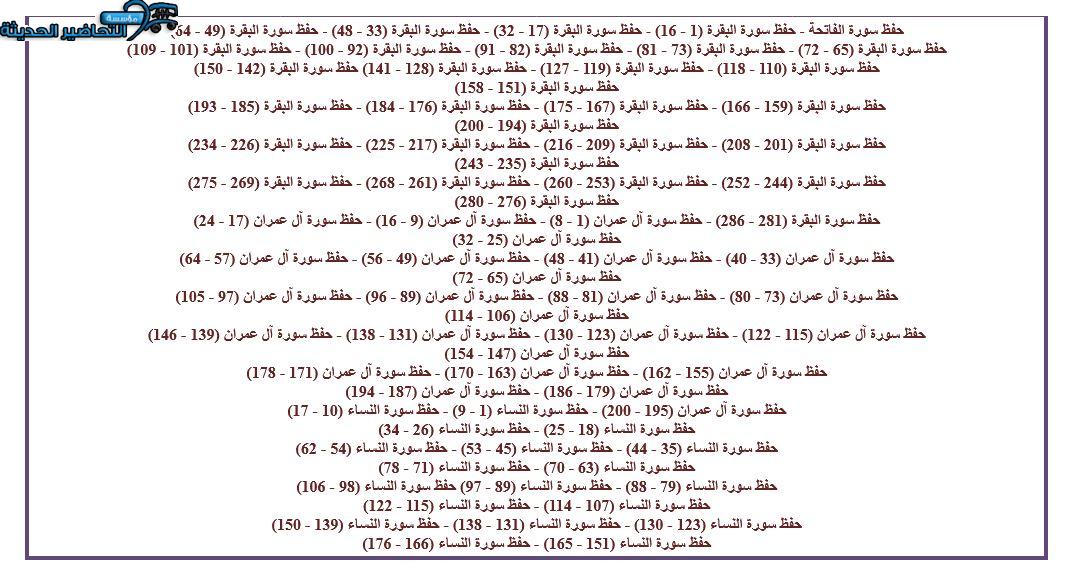 مؤسسة
التحاضير الحديثة
حفظ سورة الفاتحة - حفظ سورة البقرة (1 - 16) - حفظ سورة البقرة (17 - 32) - حفظ سورة البقرة (33 - 48) - حفظ سورة البقرة (49 - 64)
حفظ سورة البقرة (65 - 72) - حفظ سورة البقرة (73 - 81) - حفظ سورة البقرة (82 - 91) - حفظ سورة البقرة (92 - 100) - حفظ سورة البقرة (101 - 109)
حفظ سورة البقرة (110 - 118) - حفظ سورة البقرة (119 - 127) - حفظ سورة البقرة (128 - 141) حفظ سورة البقرة (142 - 150)
حفظ سورة البقرة (151 - 158)
حفظ سورة البقرة (159 - 166) - حفظ سورة البقرة (167 - 175) - حفظ سورة البقرة (176 - 184) - حفظ سورة البقرة (185 - 193)
حفظ سورة البقرة (194 - 200)
حفظ سورة البقرة (201 - 208) - حفظ سورة البقرة (209 - 216) - حفظ سورة البقرة (217 - 225) - حفظ سورة البقرة (226 - 234)
حفظ سورة البقرة (235 - 243)
حفظ سورة البقرة (244 - 252) - حفظ سورة البقرة (253 - 260) - حفظ سورة البقرة (261 - 268) - حفظ سورة البقرة (269 - 275)
حفظ سورة البقرة (276 - 280)
حفظ سورة البقرة (281 - 286) - حفظ سورة آل عمران (1 - 8) - حفظ سورة آل عمران (9 - 16) - حفظ سورة آل عمران (17 - 24)
حفظ سورة آل عمران (25 - 32)
حفظ سورة آل عمران (33 - 40) - حفظ سورة آل عمران (41 - 48) - حفظ سورة آل عمران (49 - 56) - حفظ سورة آل عمران (57 - 64)
حفظ سورة آل عمران (65 - 72)
حفظ سورة آل عمران (73 - 80) - حفظ سورة آل عمران (81 - 88) - حفظ سورة آل عمران (89 - 96) - حفظ سورة آل عمران (97 - 105)
حفظ سورة آل عمران (106 - 114)
حفظ سورة آل عمران (115 - 122) - حفظ سورة آل عمران (123 - 130) - حفظ سورة آل عمران (131 - 138) - حفظ سورة آل عمران (139 - 146)
حفظ سورة آل عمران (147 - 154)
حفظ سورة آل عمران (155 - 162) - حفظ سورة آل عمران (163 - 170) - حفظ سورة آل عمران (171 - 178)
حفظ سورة آل عمران (179 - 186) - حفظ سورة آل عمران (187 - 194)
حفظ سورة آل عمران (195 - 200) - حفظ سورة النساء (1 - 9) - حفظ سورة النساء (10 - 17)
حفظ سورة النساء (18 - 25) - حفظ سورة النساء (26 - 34)
حفظ سورة النساء (35 - 44) - حفظ سورة النساء (45 - 53) - حفظ سورة النساء (54 - 62)
حفظ سورة النساء (63 - 70) - حفظ سورة النساء (71 - 78)
حفظ سورة النساء (79 - 88) - حفظ سورة النساء (89 - 97) حفظ سورة النساء (98 - 106)
حفظ سورة النساء (107 - 114) - حفظ سورة النساء (115 - 122)
حفظ سورة النساء (123 - 130) - حفظ سورة النساء (131 - 138) - حفظ سورة النساء (139 - 150)
حفظ سورة النساء (151 - 165) - حفظ سورة النساء (166 - 176)